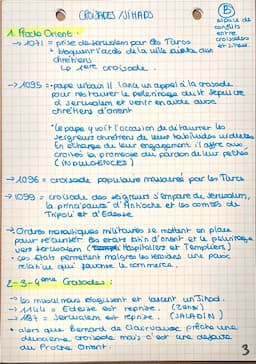 CROISADES / JIHADS
B
espace de conflits entre croisades et Jihad.
1. Proche Orient.
→ 1071 = prise de Jerusalem par les Turcs
• bloquent l'accès de la ville sainte aux
chrétiens
La 1ère croisade.
→ 1095 = pape urbain II lance un appel à la croisade
pour restaurer le pelerinage au St Sepulcre
à Jerusalem et venir en aide aux
chrétiens d'orient
• le pape y voit l'occasion de détourner les
seigneurs chrétiens de leurs habitudes
En échange de leur engagement il offre aux
croisés la promesse du pardon de leur péchés
(INDULGENCES)
→ 1096 = croisade populaire massacrée par les Turcs
→ 1099 = croisade des seigneurs s'empare de Jerusalem,
la principauté d'Antioche et les comtés de
Tripoli et d'Edesse
→ Ordres monastiques militaires se mettent en place
pour sécuriser les etats latin d'orient et le pelerinage
vers Jerusalem (Hospitaliers et Templiers)
→ ces etats permettent malgres les tensions une paix
relative qui favorise le commerce.
2-3-4ème Croisades :
→ les musulmans réagissent et lancent un Jihad.
→ 1144 = Edesse est reprise. (ZENGI)
→ 1187 = Jerusalem est reprise. (SALADIN)
• alors que Bernard de Clairvaux prêche une
deuxième croisade mais c'est une défaite
au Proche Orient.
3